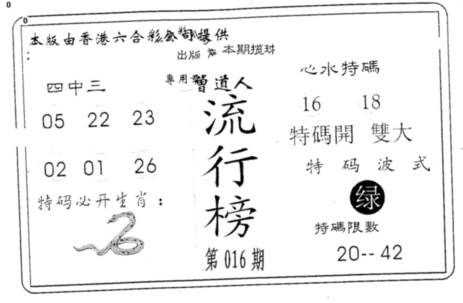 本版由香港六合彩公司提供
出版 本期搅珠
四中三
05 22 23
02 01 26
特码必开生肖：
專用 曾道人
流行榜
第016期
心水特碼
16 18
特碼開 雙大
特码波式
绿
特碼限數
20--42